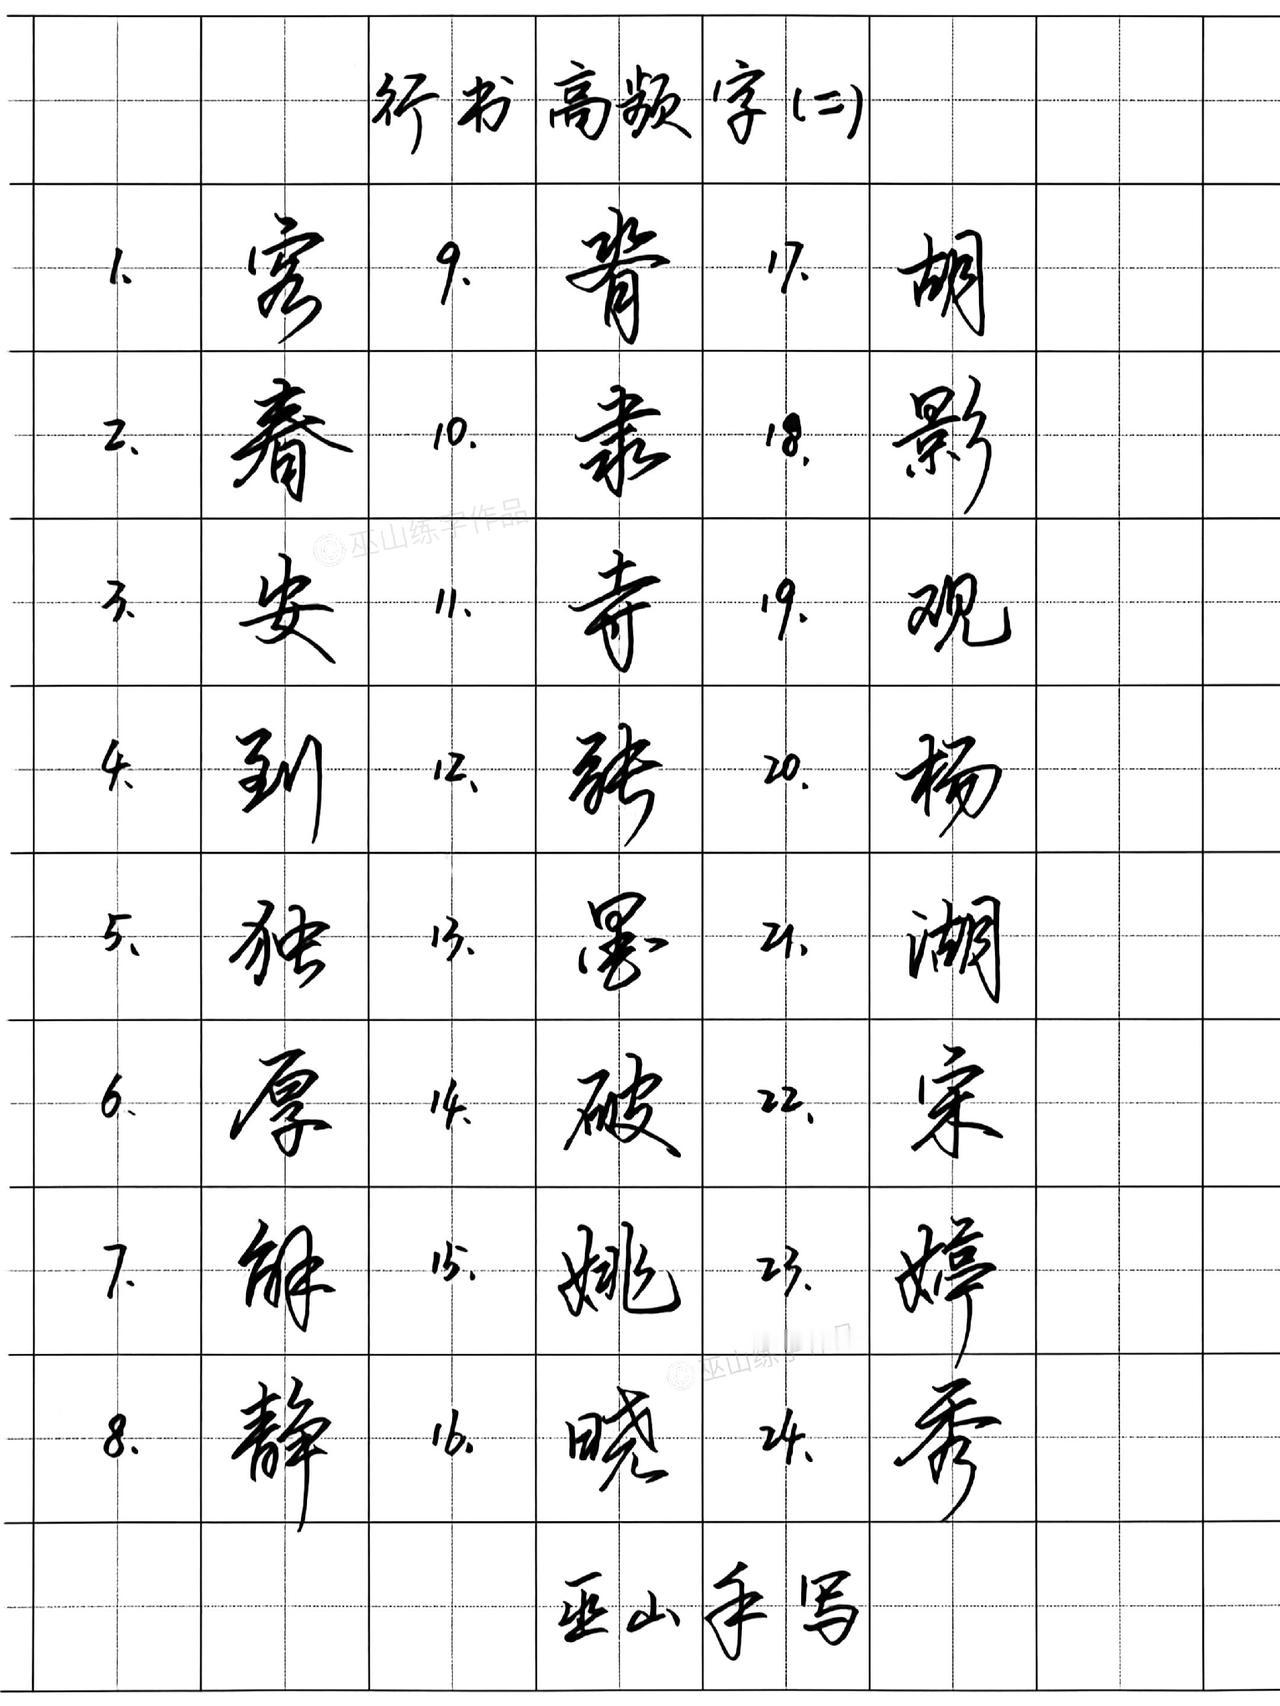 行书高频字(二)
1. 9. 脊 17. 胡
2. 春 10. 隶 18. 影
3. 安 11. 寺 19. 观
4. 到 12. 20. 杨
5. 独 13. 墨 21. 湖
6. 厚 14. 破 22. 宋
7. 解 15. 姚 23. 婷
8. 静 16. 晓 24. 秀
巫山手写
巫山练字作品
巫山练字